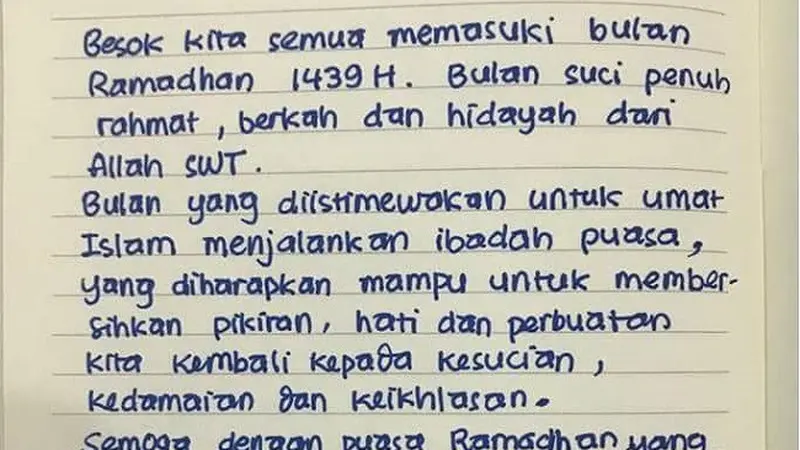 Besok kita semua memasuki bulan
Ramadhan 1439 H. Bulan suci penuh
rahmat, berkah dan hidayah dari
Allah SWT.
Bulan yang diistimewakan untuk umat
Islam menjalankan ibadah puasa,
yang diharapkan mampu untuk member-
sihkan pikiran, hati dan perbuatan
kita kembali kepada kesucian,
kedamaian dan keikhlasan.
Semoga dengan puasa Ramadhan yang